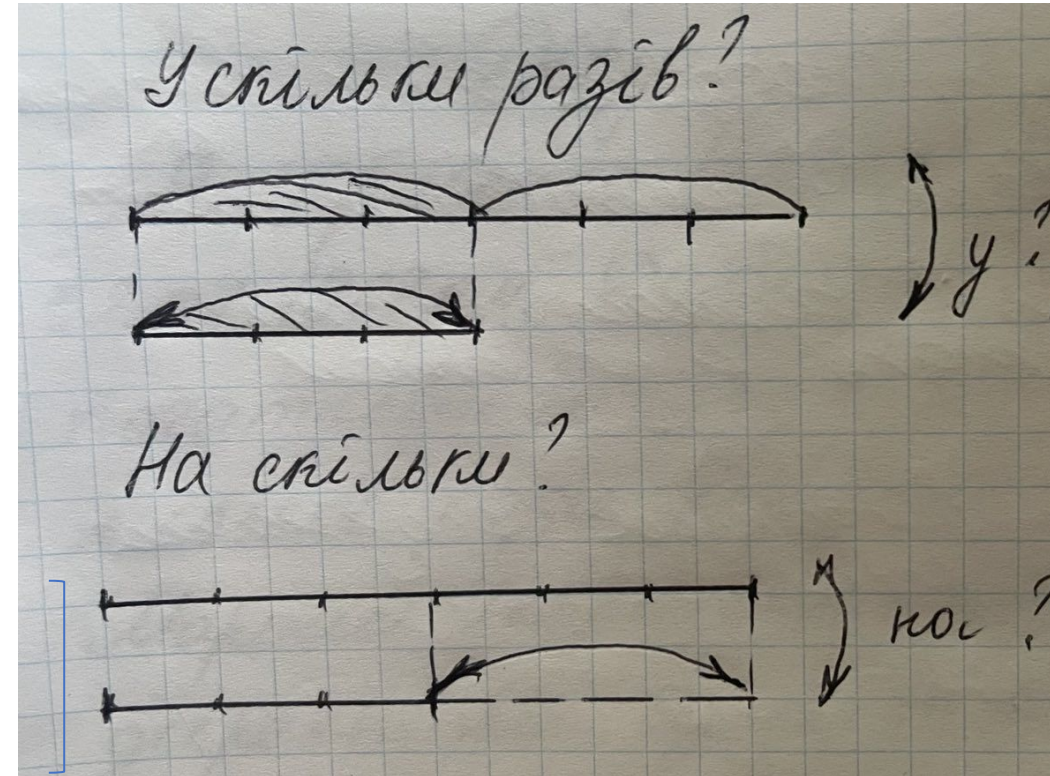 У скільки разів?
у ?
На скільки?
на ?